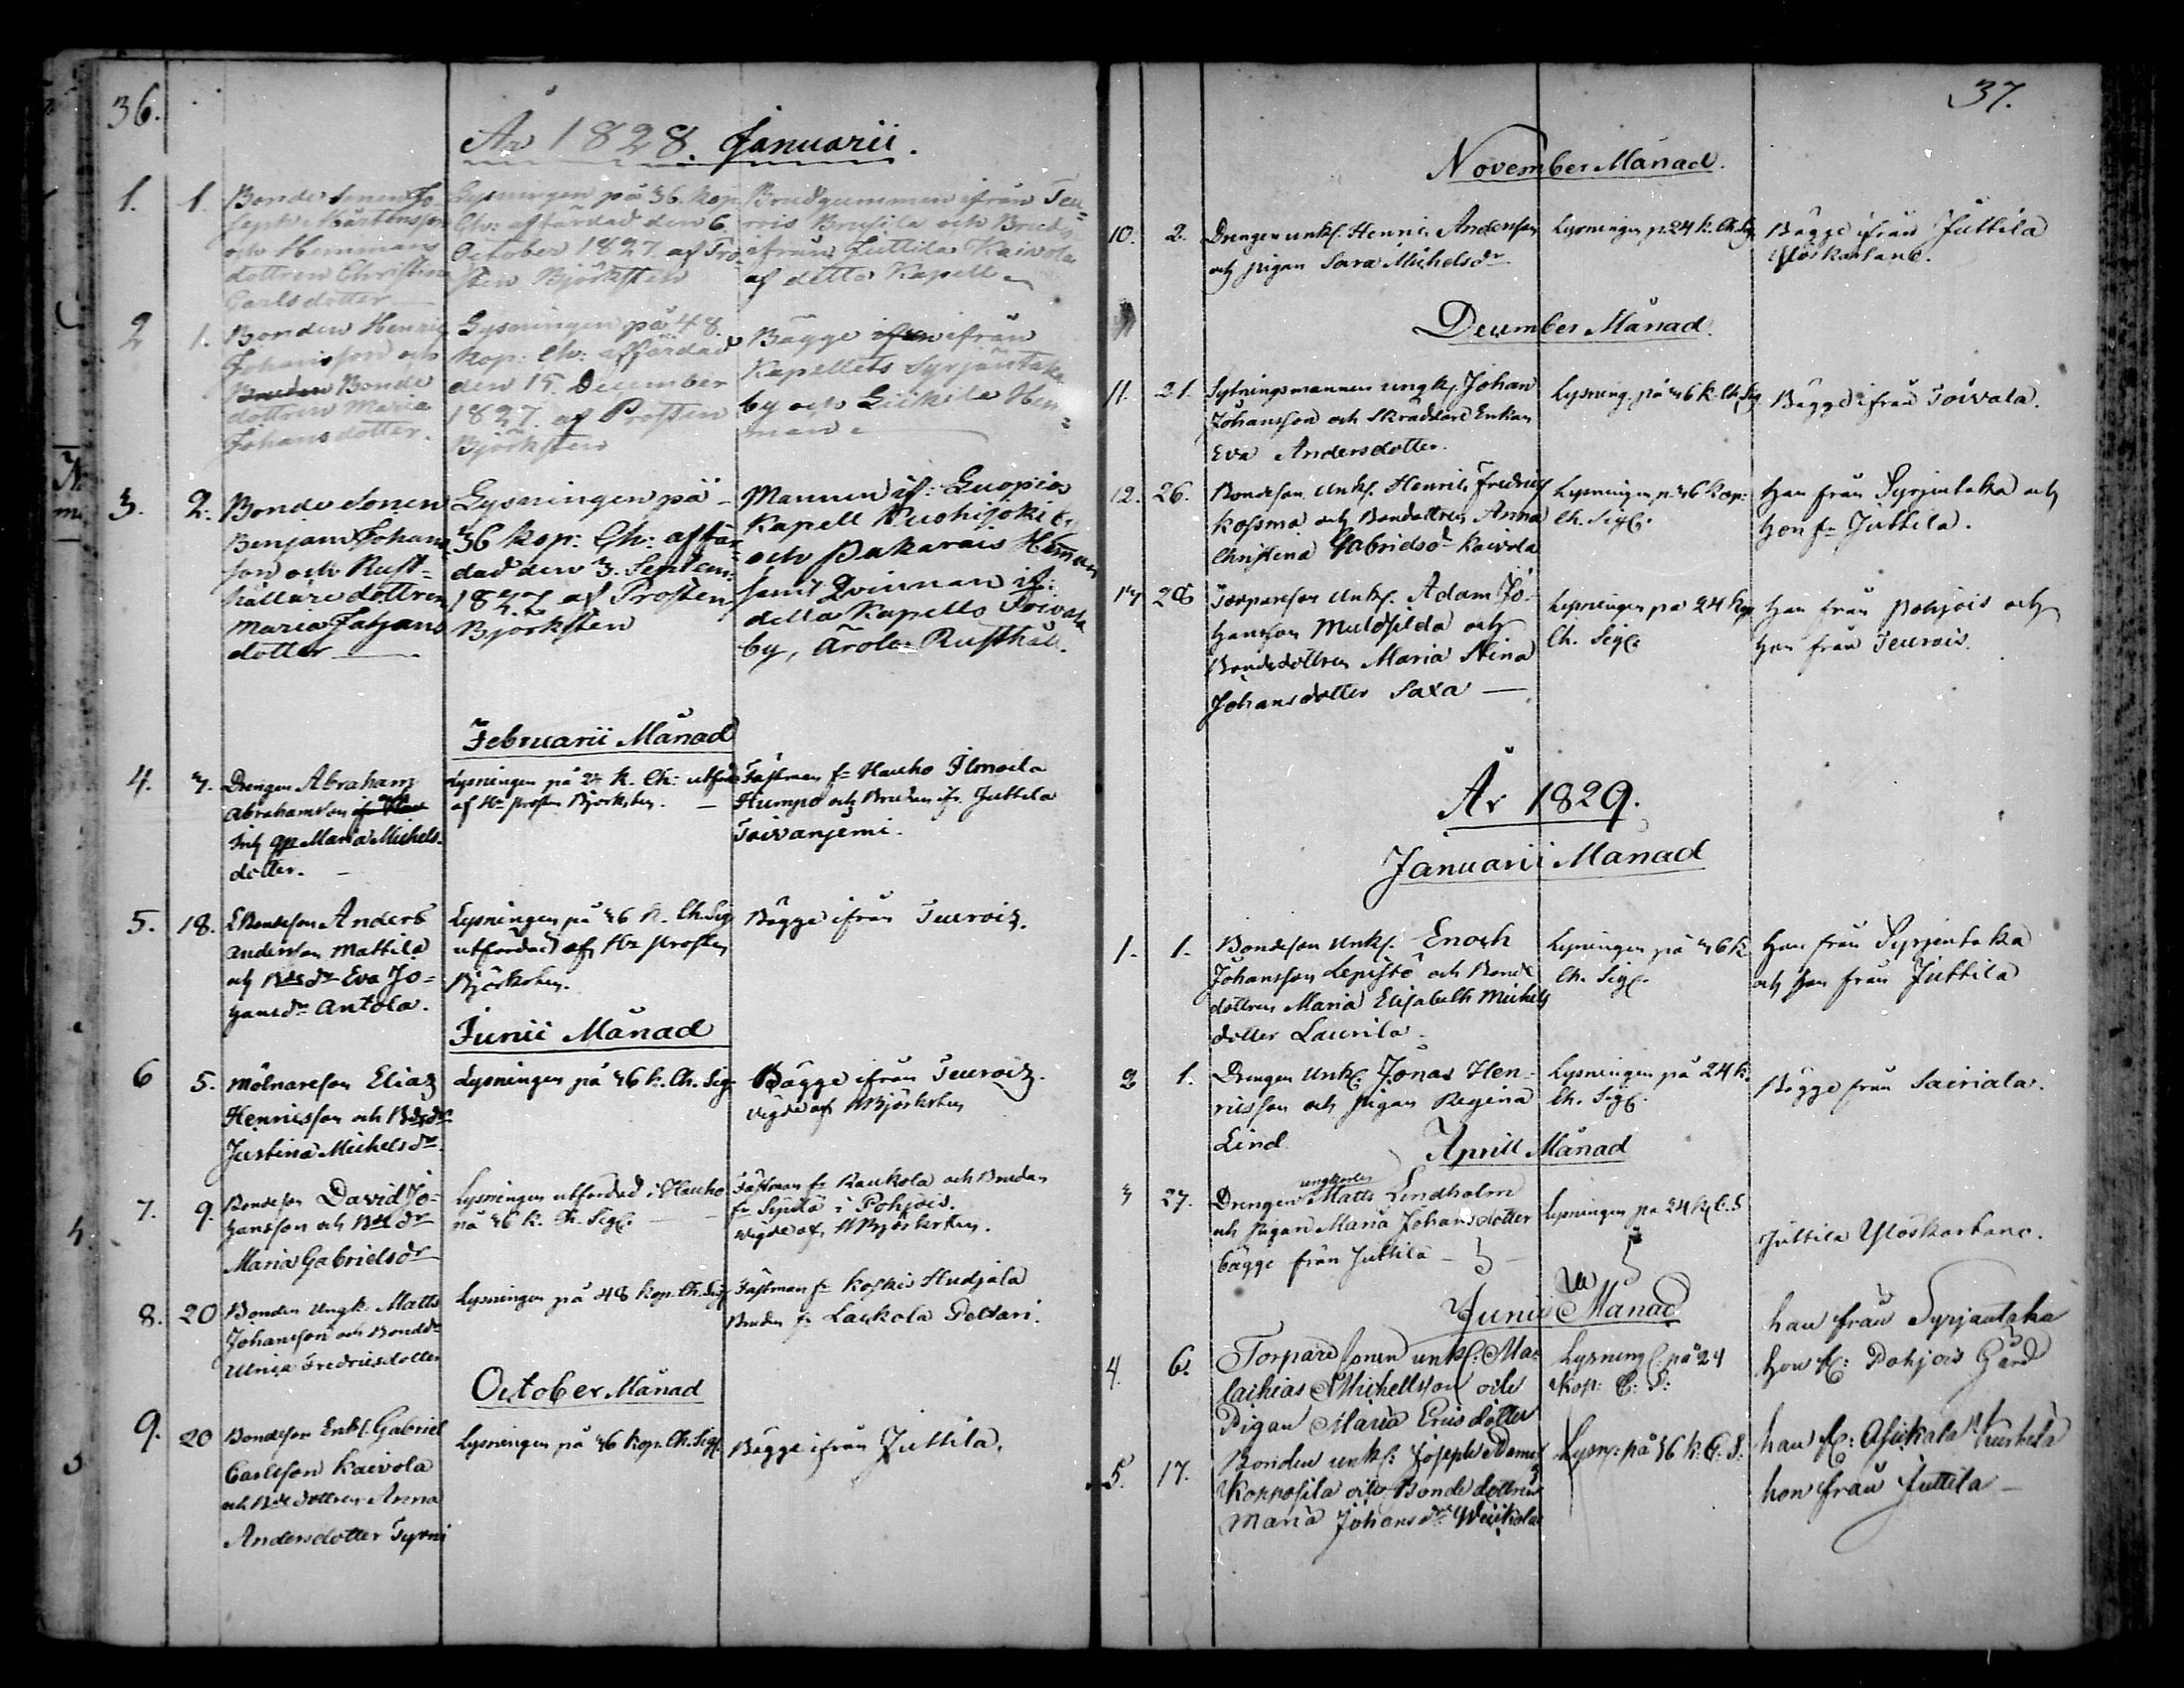 36.
År 1828. Januarii.
1. 1. Bonde Sonen Jo-
seph Mårtensson
och Hemmans
dottren Christina
Carlsdotter
Lysningen på 36. kop.
Ch: affärdad den 6.
October 1827 af Pro-
sten Björksten
Brudgummen ifrån Teu-
rois Brusila och Brud
ifrån Juttila Kaivola
af detta Kapell
2 1. Bonden Henric
Johansson och
Bruden Bonde
dottren Maria
Johansdotter.
Lysningen på 48.
kop: Ch: affärdad
den 15. December
1827. af Prosten
Björksten
Bägge ifrån
Kapellets Syrjäntaka
by och Liikila Hem-
man
3. 2. Bonde Sonen
Benjam Johans
son och Rust-
hållare dottren
Maria
dotter
Lysningen på
36 kop: Ch: affär-
dad den 3. Septem:
1827 af Prosten
Björksten
Mannen if: Luopiois
Kapell
och Pakarais Hemman
samt Qvinnan if:
detta Kapells Toivala
by, Arola Rusthåll.
Februarii Månad
4. 7. Drengen Abraham
Abrahamson
och Maria Michels-
dotter.
Lysningen på 24 k. Ch:
af Hr Prosten Björksten.
Fästman fr Hauho Ilmoila
Humpo och Bruden ifr. Juttila
Toivanjemi.
5. 18. Bondeson Anders
Andersson Mattila
och Bdedr Eva Jo-
hansdr Antola.
Lysningen på 36 k. Ch. Sig
utfärdad af Hr Prosten
Björksten.
Bägge ifrån Teurois.
Junii Månad
6 5. Mölnareson Elias
Henricsson och Bdedr
Justina Michelsdr
Lysningen på 36 k. Ch. Sig.
Bägge ifrån Teurois.
vigde af Björksten
7. 9. Bondeson David Jo-
hansson och Bdedr
Maria Gabrielsdr
Lysningen utfärdad i Hauho
på 36 k. Ch. Sig.
Fästman fr Raukola och Bruden
fr Sipilä i Pohjois.
vigde af Björksten.
8. 20 Bonden Ungk. Matts
Johansson och Bondedr
Ulrica Fredricsdotter
Lysningen på 48 kop. Ch. Sig
Fästman fr Koskis Hudjala
Bruden fr Laukola Peltari.
October Månad
9. 20 Bondeson Enkl. Gabriel
Carlsson Kaivola
och Bdedottren Anna
Andersdotter Tyrni
Lysningen på 36 kop. Ch. Sig.
Bägge ifrån Juttila.
37.
November Månad.
10. 2. Drengen unkl. Henric Andersson
och pigan Sara Michelsdr
Lysningen p. 24 k. Ch. Sig.
Bägge ifrån Juttila
Ylöskartano.
December Månad.
11. 21. Sytningsmannen ungk. Johan
Johansson och Skräddare Enkan
Eva Andersdotter.
Lysning. på 36 k. Ch. Sig
Bägge ifrån Toivala.
12. 26. Bondeson unkl. Henric Fredric
Kossma och Bondottren Anna
Christina Gabrielsdr Kaivola
Lysningen p 36 kop:
Ch. Sig.
Han från Syrjentaka och
hon fr Juttila.
13 28 Torpareson unkl. Adam Jo-
hansson och
Bondedottren Maria Stina
Johansdotter Saxa
Lysningen på 24 kop
Ch. Sig.
Han från Pohjois och
hon från Teurois.
År 1829.
Januarii Månad
1. 1. Bondeson Unkl. Enoch
Johansson Lepistö och Bonde
dottren Maria Elisabeth Michels
dotter Laurila.
Lysningen på 36 k
Ch. Sig.
Han från Syrjentaka
och hon från Juttila
2 1. Drengen Unkl. Jonas Hen-
ricsson och pigan Regina
Lind
Lysningen på 24 k.
Ch. Sig.
Bägge från Sairiala.
Aprill Månad
3 27. Drengen ungkarlen Matts Lindholm
och Pigan Maria Johansdotter
bägge från Juttila
Lysningen på 24 k C. S
Juttila Ylöskartano.
Junii Månad
4. 6. Torpare sonen unkl: Ma-
lachias Michellsson och
Pigan Maria Ericsdotter
Lysning på 24
kop: C: S:
han från Syrjäntaka
hon fr: Pohjois Gård
5. 17. Bonden unkl: Joseph Adams
och Bonde dottren
Maria Johansdr
Lysn: på 36 k: C: S:
han fr: Asikala
hon från Juttila